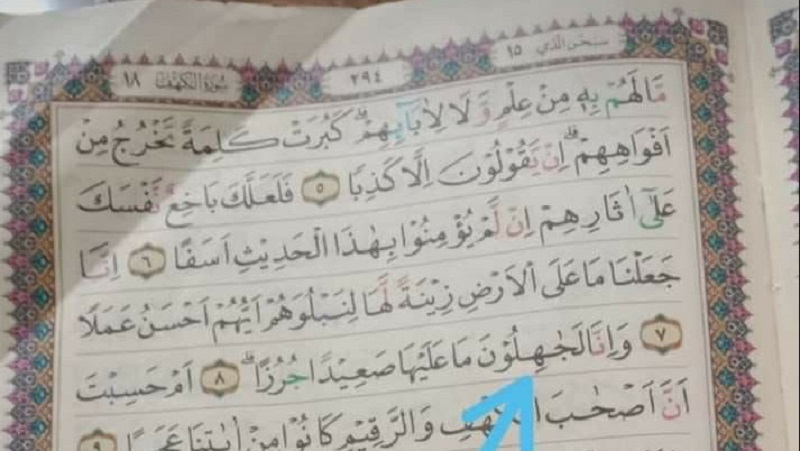 سبحن الذي ١٥ ٢٩٤ سورة الكهف ١٨
مَّا لَهُمْ بِهٖ مِنْ عِلْمٍ وَّلَا لِاٰبَاۤىِٕهِمْۗ كَبُرَتْ كَلِمَةً تَخْرُجُ مِنْ
اَفْوَاهِهِمْۗ اِنْ يَّقُوْلُوْنَ اِلَّا كَذِبًا ٥ فَلَعَلَّكَ بَاخِعٌ نَّفْسَكَ
عَلٰٓى اٰثَارِهِمْ اِنْ لَّمْ يُؤْمِنُوْا بِهٰذَا الْحَدِيْثِ اَسَفًا ٦ اِنَّا
جَعَلْنَا مَا عَلَى الْاَرْضِ زِيْنَةً لَّهَا لِنَبْلُوَهُمْ اَيُّهُمْ اَحْسَنُ عَمَلًا
٧ وَاِنَّا لَجٰهِلُوْنَ مَا عَلَيْهَا صَعِيْدًا جُرُزًاۗ ٨ اَمْ حَسِبْتَ
اَنَّ اَصْحٰبَ الْكَهْفِ وَالرَّقِيْمِ كَانُوْا مِنْ اٰيٰتِنَا عَجَبًا ٩